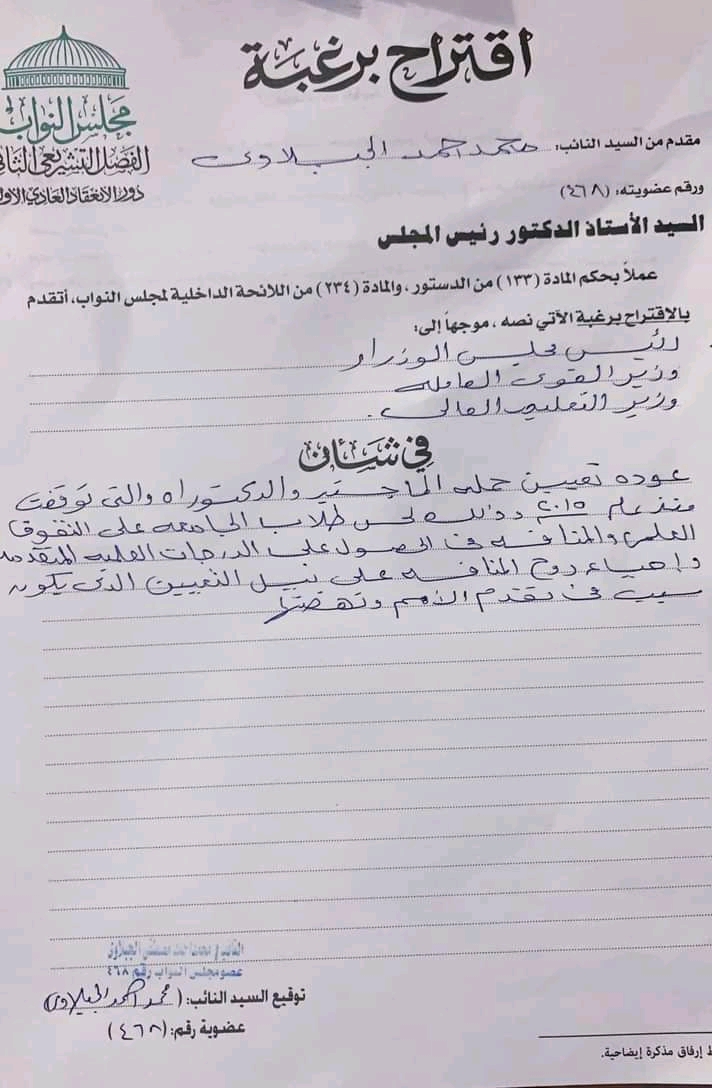 اقتراح برغبة
مجلس النواب
الفصل التشريعي الثاني
دور الانعقاد العادي الاول
مقدم من السيد النائب: محمد احمد الجبلاوى
ورقم عضويته: (٤٦٨)
السيد الأستاذ الدكتور رئيس المجلس
عملاً بحكم المادة (١٣٣) من الدستور، والمادة (٢٣٤) من اللائحة الداخلية لمجلس النواب، أتقدم
بالاقتراح برغبة الآتي نصه، موجهاً إلى:
رئيس مجلس الوزراء
وزير القوى العامله
وزير التعليم العالى.
في شأن
عوده تعيين حمله الماجستير والدكتوراه والتى توقفت
منذ عام ٢٠١٥ وذلك لحس طلاب الجامعه على التفوق
العلمى والمنافسه فى الحصول على الدرجات العلميه المتقدمه
واحياء روح المنافسه على نيل التعيين الذى يكون
سبب فى تقدم الأمم ونهضتها
النائب / محمد احمد مصطفى الجبلاوى
عضو مجلس النواب رقم ٤٦٨
توقيع السيد النائب: (محمد احمد الجبلاوى)
عضوية رقم: (٤٦٨)
إرفاق مذكرة إيضاحية.